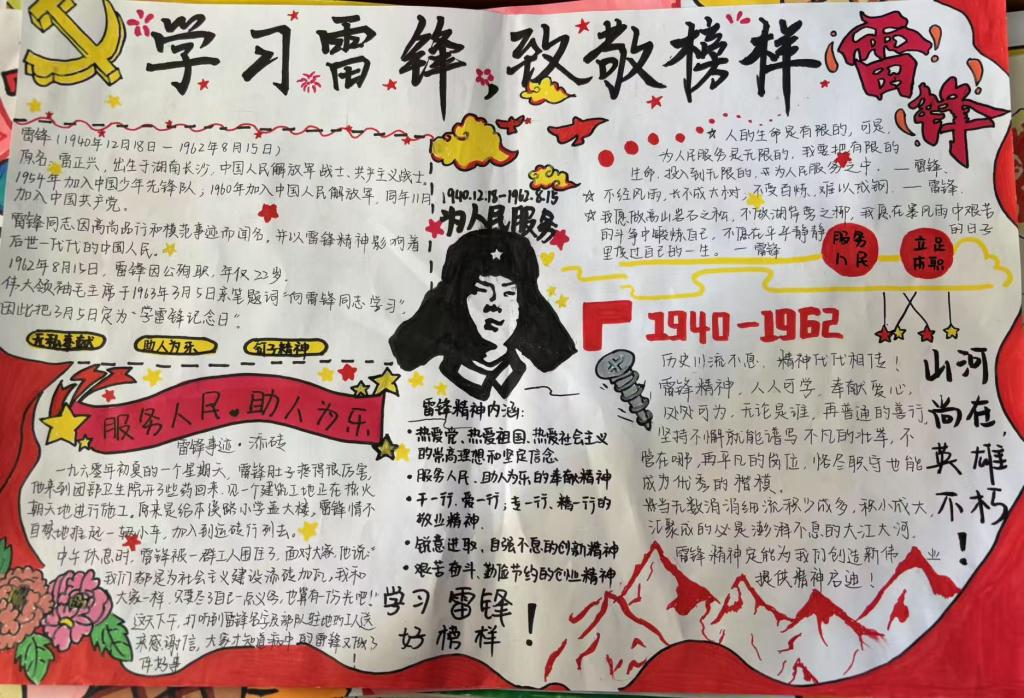 学习雷锋,致敬榜样
雷锋
雷锋(1940年12月18日—1962年8月15日)
原名雷正兴,出生于湖南长沙,中国人民解放军战士、共产主义战士,
1954年加入中国少年先锋队;1960年加入中国人民解放军,同年11月
加入中国共产党。
雷锋同志因高尚品行和模范事迹而闻名,并以雷锋精神影响着
后世一代代的中国人民。
1962年8月15日,雷锋因公殉职,年仅22岁。
伟大领袖毛主席于1963年3月5日亲笔题词“向雷锋同志学习”,
因此把3月5日定为“学雷锋记念日”。
无私奉献
助人为乐
钉子精神
1940.12.18-1962.8.15
为人民服务
人的生命是有限的,可是,
为人民服务是无限的,我要把有限的
生命,投入到无限的,为人民服务之中。—雷锋
不经风雨,长不成大树,不受百炼,难以成钢。—雷锋
我愿做高山岩石之松,不做湖岸旁之柳,我愿在暴风雨中艰苦
的斗争中锻炼自己,不愿在平平静静的日子
里度过自己的一生。—雷锋
服务
人民
立足
本职
1940-1962
服务人民。助人为乐
雷锋事迹·添砖
一九六零年初夏的一个星期天,雷锋肚子疼得很厉害,
他来到团部卫生院开了些药回来,见一个建筑工地正在热火
朝天地进行施工。原来是给本溪路小学盖大楼,雷锋情不
自禁地推起一辆小车,加入到运砖行列去。
中午休息时,雷锋被一群工人围住了,面对大家他说:“
我们都是为社会主义建设添砖加瓦,我和
大家一样,只要尽了自己一点义务,也算有一份光吧!”
这天下午,打听到雷锋名字及部队驻地的工人送
来感谢信,大家才知道病中的雷锋又做了
件好事
雷锋精神内涵:
•热爱党、热爱祖国、热爱社会主义
的崇高理想和坚定信念
•服务人民、助人为乐的奉献精神
•干一行、爱一行;专一行、精一行的
敬业精神
•锐意进取、自强不息的创新精神
•艰苦奋斗、勤俭节约的创业精神
学习雷锋
好榜样!
历史川流不息,精神代代相传!
雷锋精神,人人可学,奉献爱心,
处处可为,无论是谁,再普通的善行,
坚持不懈就能谱写不凡的壮举,不
管在哪,再平凡的岗位,恪尽职守也能
成为优秀的楷模。
当无数涓涓细流积少成多,积小成大,
汇聚成的必是澎湃不息的大江大河。
雷锋精神定能为我们创造新伟业
提供精神启迪!
山河
尚在,
英雄
不朽
!